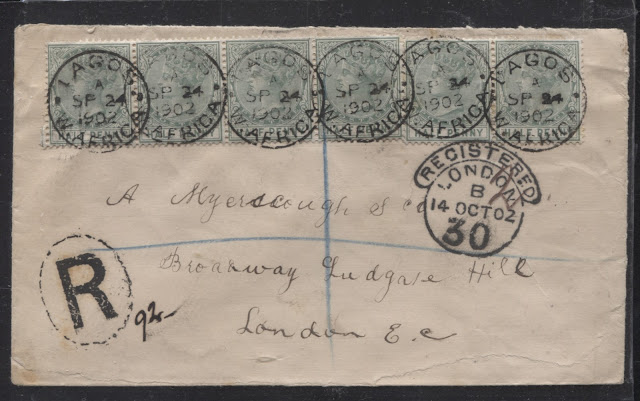 LAGOS LAGOS LAGOS LAGOS LAGOS LAGOS
A A A A A A
SP 24 SP 24 SP 24 SP 24 SP 24 SP 24
1902 1902 1902 1902 1902 1902
W.AFRICA W.AFRICA W.AFRICA W.AFRICA W.AFRICA W.AFRICA
REGISTERED
LONDON
B
14 OCT 02
30
A Myerscough & Co
Broadway Ludgate Hill
London E.C
R
92